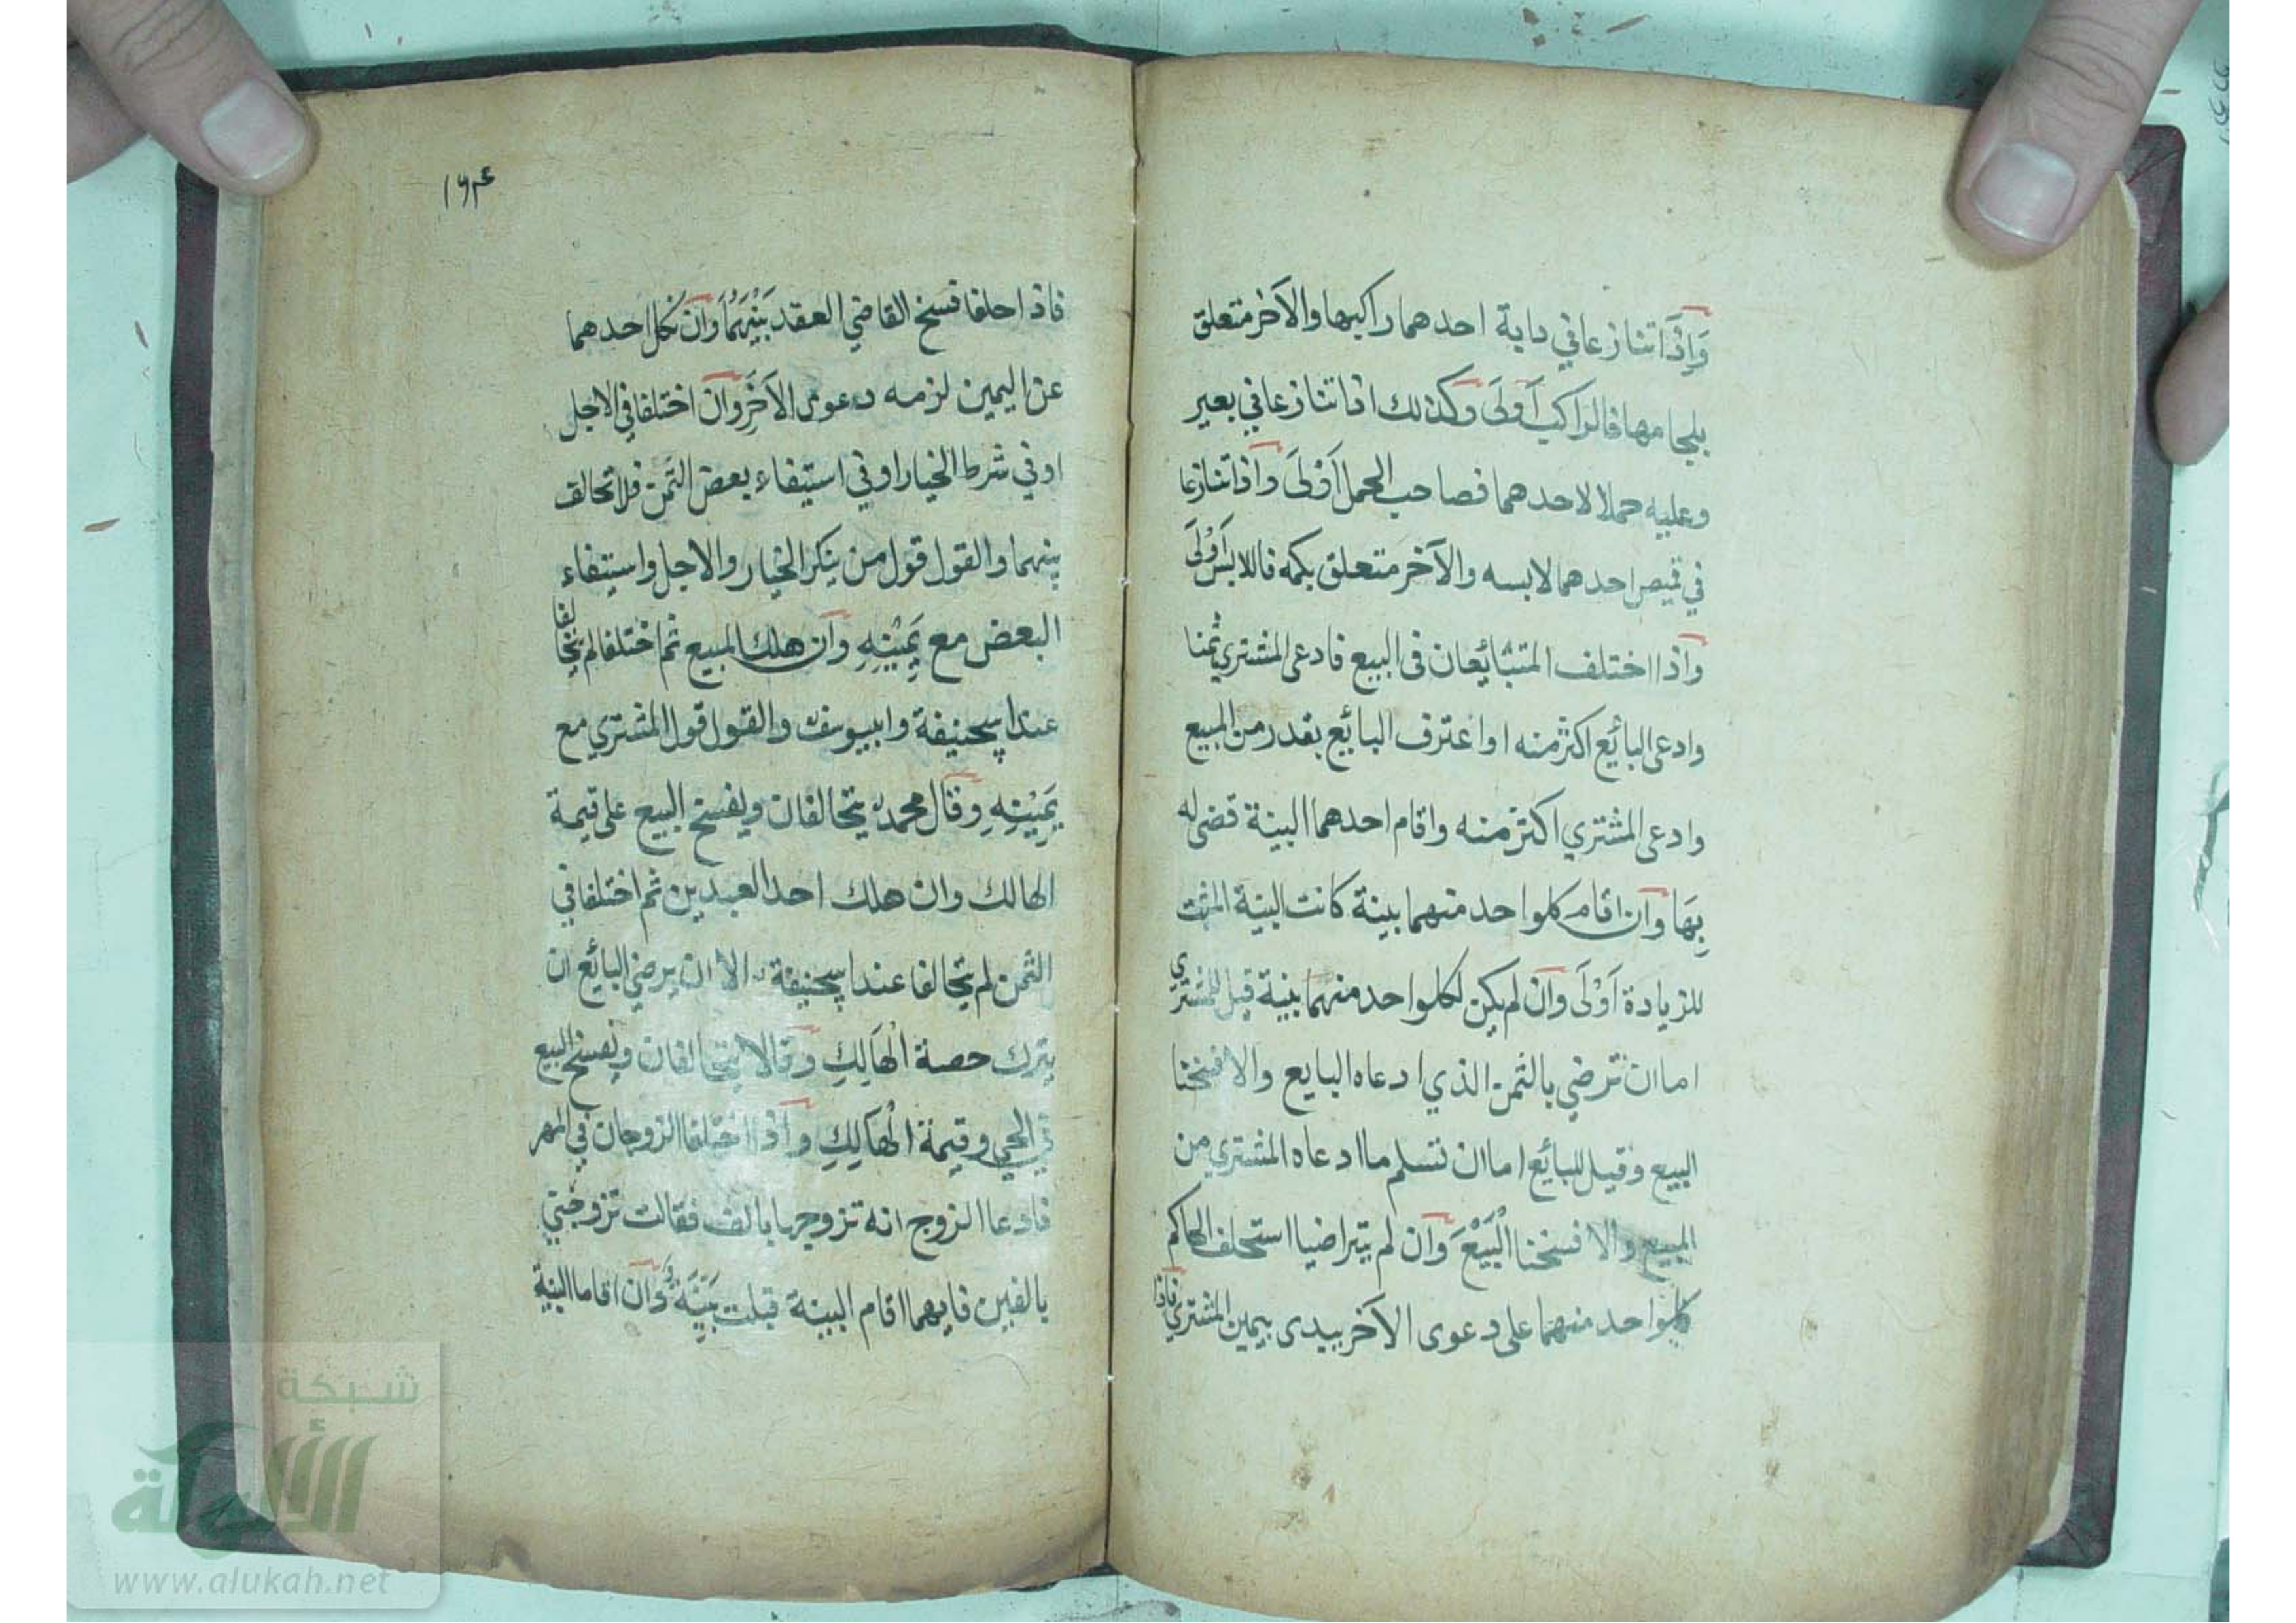 وَاِذَا تنازعا في دابة احدهما راكبها والآخر متعلق
بلجامها فالراكب اَولَى وكذلك اذا تنازعا في بعير
وعليه حملا لاحدهما فصاحب الحمل اَوْلَى واذا تنازعا
في قميص احدهما لابسه والآخر متعلق بكمه فاللابس اَوْلَى
واذا اختلف المتبايعان في البيع فادعى المشتري ثمنا
وادعى البائع اكثر منه او اعترف البايع بقدر من المبيع
وادعى المشتري اكثر منه واقام احدهما البينة قضى له
بِهَا وان اقام كلواحد منهما بينة كانت البينة المثبت
للزيادة اَوْلَى وان لم يكن لكلواحد منهما بينة قيل للمشتري
اما ان ترضي بالثمن الذي ادعاه البايع والا فسخنا
البيع وقيل للبائع اما ان تسلم ما ادعاه المشتري من
المبيع والا فسخنا الْبَيْعَ وان لم يتراضيا استحلف الحاكم
كلواحد منهما على دعوى الآخر يبدى بيمين المشتري فاذا
١٦٤
فاذا حلفا فسخ القاضي العقد بَيْنَهُمَا وان نكل احدهما
عن اليمين لزمه دعوى الآخَرِ وان اختلفا في الاجل
او في شرط الخيار او في استيفاء بعض الثمن فلا تحالف
بينهما والقول قول من ينكر الخيار والاجل واستيفاء
البعض مع يَمِيْنِهِ وان هلك المبيع ثم اختلفا لم يتحالفا
عند ابيحنيفة وابيوسف والقول قول المشتري مع
يَمِيْنِهِ وقال محمد يتحالفان ويفسخ البيع على قيمة
الهالك وان هلك احد العبدين ثم اختلفا في
الثمن لم يتحالفا عند ابيحنيفة الا ان يرضي البائع ان
يترك حصة الْهَالِكِ وقالا يتحالفان ويفسخ البيع
في الحي وقيمة الْهَالِكِ واذا اختلفا الزوجان في المهر
فادعا الزوج انه تزوجها بالف فقالت تزوجتني
بالفين فايهما اقام البينة قبلت بَيِّنَةُ وان اقاما البينة
شبكة
الألوكة
www.alukah.net